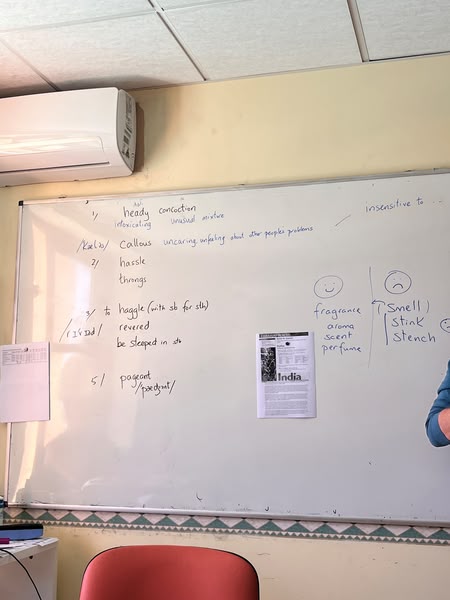 adj n
1/ heady concoction
intoxicating unusual mixture
insensitive to ...
/kæləs/ callous uncaring, unfeeling about other peoples problems
2/ hassle
throngs
3/ to haggle (with sb for sth)
revered
be steeped in sth
5/ pageant
/pædʒənt/
fragrance
aroma
scent
perfume
(smell)
stink
stench
India